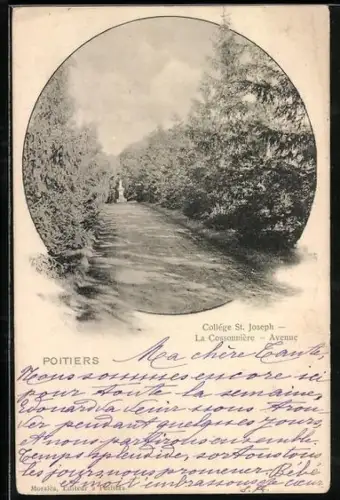 Collége St. Joseph —
La Cossonnière — Avenue
POITIERS
Ma chère Tante,
Nous sommes encore ici
pour toute la semaine,
Edouard
pendant quelques jours,
et nous partirons ensemble.
Temps splendide, sortons tous
les jours nous promener. Bébé
et moi t'embrassons de cœur
Éditeur à Poitiers